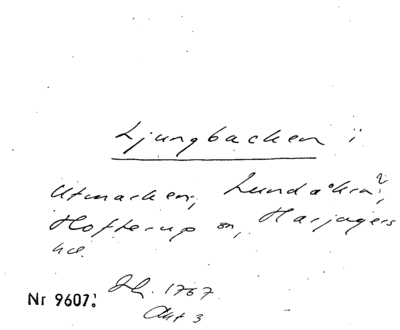 Ljungbacken i
Utmarken, Lundåkra?,
Hofterup sn, Harjagers
hd.
Sh. 1767
Akt 3
Nr 9607: